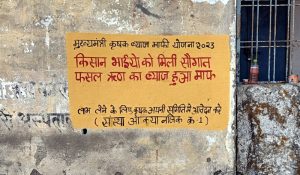 मुख्यमंत्री कृषक ब्याज माफी योजना 2023
किसान भाईयो को मिली सौगात
फसल ऋण का ब्याज हुआ माफ
लाभ लेने के लिए कृषक अपनी समिति में आवेदन करे
( संस्था